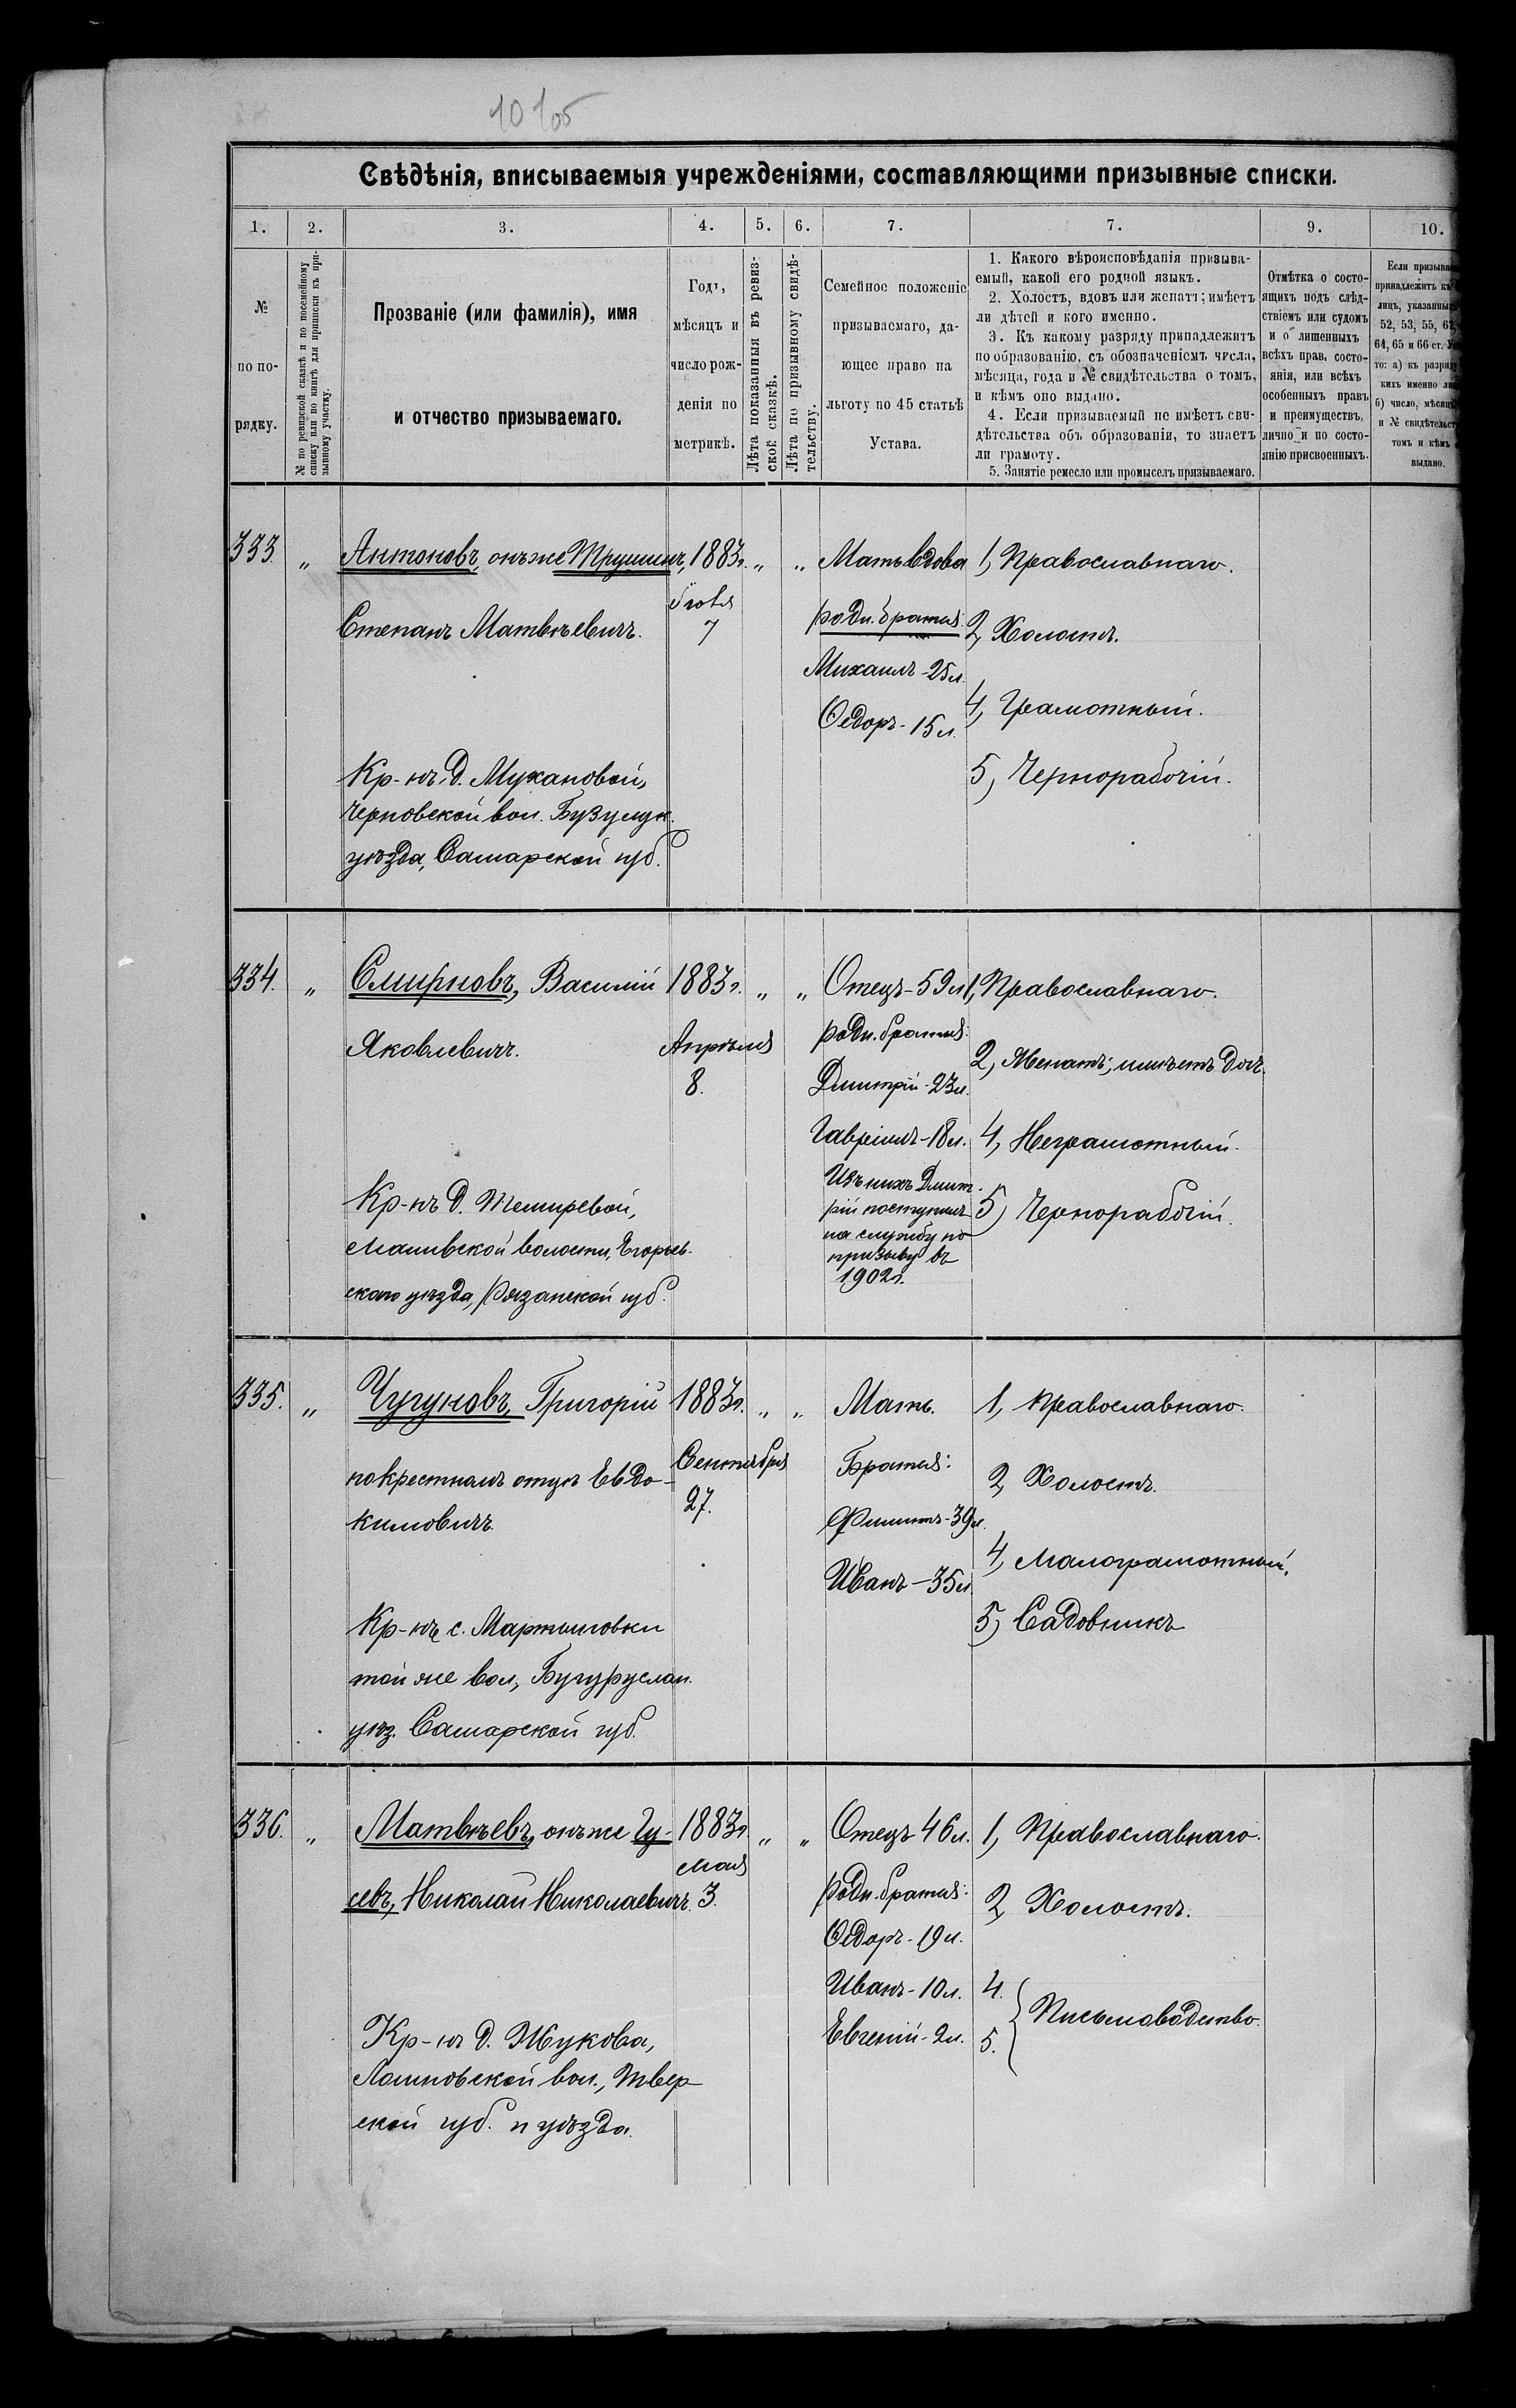 10 105
Свѣдѣнія, вписываемыя учрежденіями, составляющими призывные списки.
1. 2. 3. 4. 5. 6. 7. 7. 9. 10.
№
по по-
рядку.
№ по ревизской сказкѣ и по посемейному
списку или по книгѣ для приписки къ при-
зывному участку.
Прозваніе (или фамилія), имя
и отчество призываемаго.
Годъ,
мѣсяцъ и
число рож-
денія по
метрикѣ.
Лѣта показанныя въ ревиз-
ской сказкѣ.
Лѣта по призывному свидѣ-
тельству.
Семейное положеніе
призываемаго, да-
ющее право на
льготу по 45 статьѣ
Устава.
1. Какого вѣроисповѣданія призыва-
емый, какой его родной языкъ.
2. Холостъ, вдовъ или женатъ; имѣетъ
ли дѣтей и кого именно.
3. Къ какому разряду принадлежитъ
по образованію, съ обозначеніемъ числа,
мѣсяца, года и № свидѣтельства о томъ,
и кѣмъ оно выдано.
4. Если призываемый не имѣетъ сви-
дѣтельства объ образованіи, то знаетъ
ли грамоту.
5. Занятіе ремесло или промыселъ призываемаго.
Отмѣтка о состо-
ящихъ подъ слѣд-
ствіемъ или судомъ
и о лишенныхъ
всѣхъ прав, состо-
янія, или всѣхъ
особенныхъ правъ
и преимуществъ,
лично и по состо-
янію присвоенныхъ.
Если призыва
принадлежитъ къ
лицъ, указанны
52, 53, 55, 62
64, 65 и 66 ст. У
то: а) къ разряд
кихъ именно ли
б) число, мѣсяц
и № свидѣтельст
томъ и кѣмъ
выдано.
333. „ Антоновъ, онъ же Трушинъ,
Степанъ Матвѣевичъ.
Кр-нъ, д. Мухановой,
Черновской вол. Бузулук.
уѣзда, Самарской губ.
1883г.
7
„ „
Мать вдова
родн. братья:
Михаилъ - 25 л.
Ѳедоръ - 15 л.
1, Православнаго.
2, Холостъ.
4, Грамотный.
5, Чернорабочій.
334. „ Смирновъ, Василій
Яковлевичъ.
Кр-нъ д. Темиревой,
Маливской волости, Егорьев-
скаго уѣзда, Рязанской губ.
1883г.
Апрѣля
8.
„ „
Отецъ - 59 л.
родн. братья:
Дмитрій - 23 л.
Гавріилъ - 18 л.
Изъ нихъ Дмит-
рій поступилъ
на службу по
призыву въ
1902г.
1, Православнаго.
2, Женатъ; имѣетъ доч.
4, Неграмотный.
5, Чернорабочій.
335. „ Чугуновъ, Григорій
по крестномъ отцѣ Евдо-
кимовичъ.
Кр-нъ с. Мартыновки
той же вол., Бугуруслан.
уѣз. Самарской губ.
1883г.
Сентября
27.
„ „
Мать.
Братья:
Филиппъ - 39 л.
Иванъ - 35 л.
1, Православнаго.
2, Холостъ.
4, Малограмотный.
5, Садовникъ
336. „ Матвѣевъ, онъ же Гу-
севъ, Николай Николаевичъ.
Кр-нъ д. Жукова,
вол., Твер-
ской губ. и уѣзда.
1883г.
Мая
3.
„ „
Отецъ 46 л.
родн. братья:
Ѳедоръ - 19 л.
Иванъ - 10 л.
Евгеній - 2 л.
1, Православнаго.
2, Холостъ.
4.
5. Письмоводство.